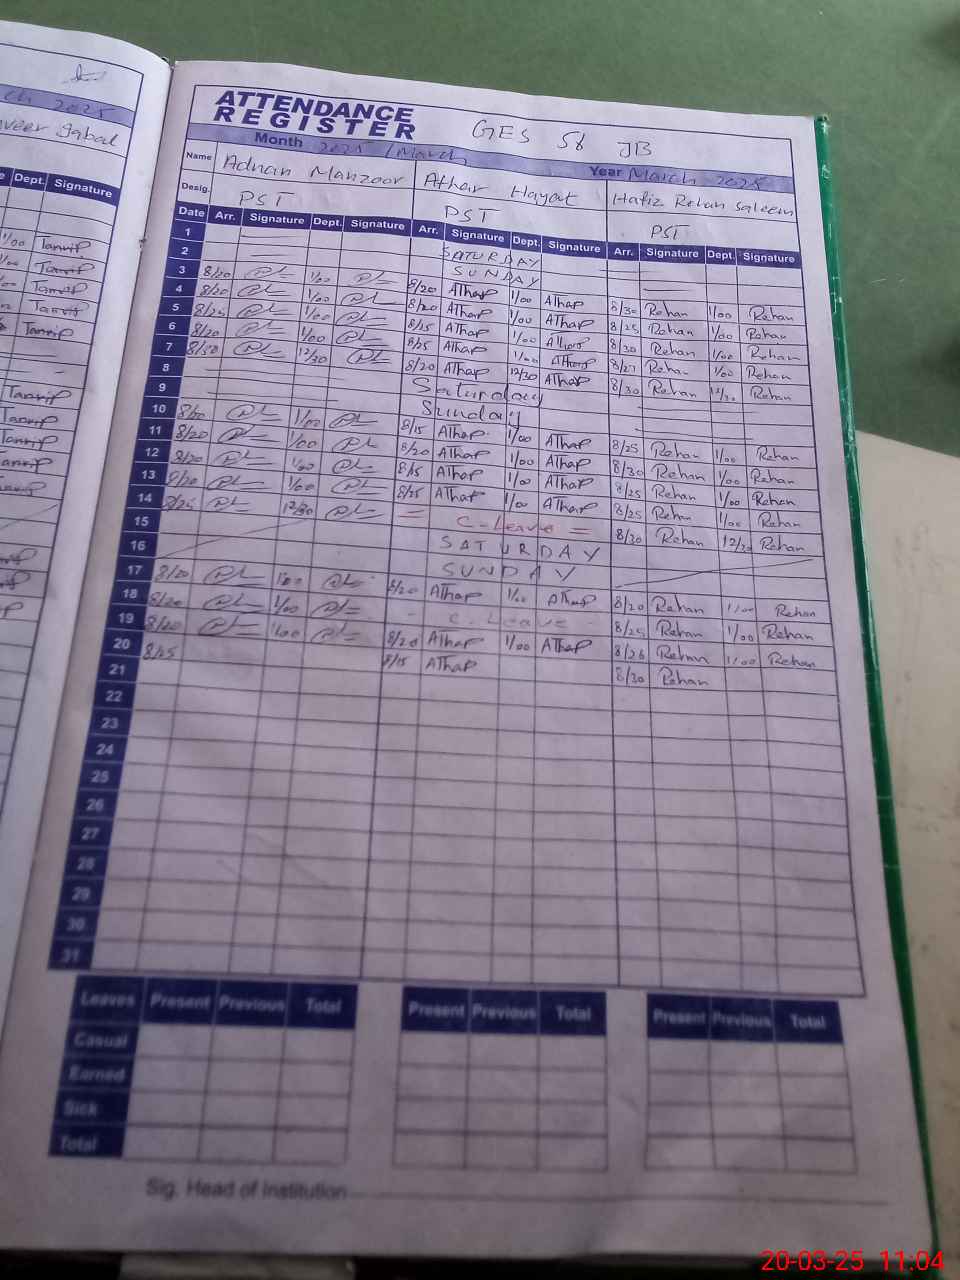 ch 2025
nveer Iqbal
Dept. Signature
1/00 Tanvir
Tanvir
Tanvir
Tanvir
Tanvir
Tanvir
Tanvir
Tanvir
Tanvir
ATTENDANCE
REGISTER
GES 58 JB
Month 2025 / March Year March 2025
Name Adnan Manzoor Athar Hayat Hafiz Rehan Saleem
Desig. PST PST PST
Date Arr. Signature Dept. Signature Arr. Signature Dept. Signature Arr. Signature Dept. Signature
1 SATURDAY
2 SUNDAY
3 8/20 1/00 8/20 AThar 1/00 AThar 8/30 Rehan 1/00 Rehan
4 8/20 1/00 8/20 AThar 1/00 AThar 8/25 Rehan 1/00 Rehan
5 8/25 1/00 8/15 AThar 1/00 Athar 8/30 Rehan 1/00 Rehan
6 8/20 1/00 8/25 AThar 1/00 Athar 8/27 Rehan 1/00 Rehan
7 8/30 12/30 8/20 AThar 12/30 AThar 8/30 Rehan 12/30 Rehan
8 Saturday
9 Sunday
10 8/20 1/00 8/15 AThar 1/00 AThar 8/25 Rehan 1/00 Rehan
11 8/20 1/00 8/20 AThar 1/00 AThar 8/30 Rehan 1/00 Rehan
12 8/20 1/00 8/15 AThar 1/00 AThar 8/25 Rehan 1/00 Rehan
13 8/20 1/00 8/25 AThar 1/00 AThar 8/25 Rehan 1/00 Rehan
14 8/25 12/30 = C-Leave = 8/30 Rehan 12/30 Rehan
15 SATURDAY
16 SUNDAY
17 8/20 1/00 8/20 AThar 1/00 AThar 8/20 Rehan 1/00 Rehan
18 8/20 1/00 - C. Leave - 8/25 Rehan 1/00 Rehan
19 8/20 1/00 8/20 AThar 1/00 AThar 8/26 Rehan 1/00 Rehan
20 8/25 8/15 AThar 8/30 Rehan
21
22
23
24
25
26
27
28
29
30
31
Leaves Present Previous Total Present Previous Total Present Previous Total
Casual
Earned
Sick
Total
Sig. Head of Institution
20-03-25 11:04